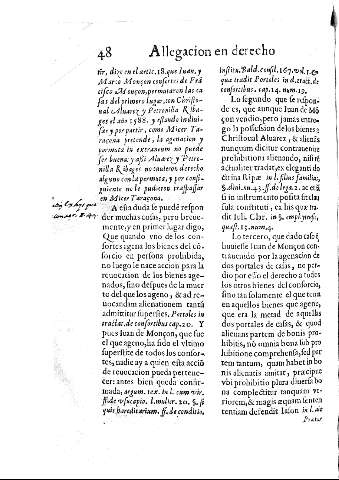 48 Allegacion en derecho
tir, dize en el artic. 18. que Iuan, y
Mario Monçon consortes de Frá
cisco Monçon, permutaron las ca
sas del primero lugar, con Christo-
ual Aluarez y Petronila Ribá-
ges el año 1588. y estando indiui-
sas y por partir, como Micer Ta-
raçona pretende, la agenacion y
permuta in extraneum no puede
ser buena: y assi Aluarez y Petro-
nilla Ribages no tuuieron derecho
alguno con la permuta, y por consi-
guiente no le pudieron traspassar
en Micer Taraçona.
A esta duda se puede respon
der muchas cosas, pero breue-
mente; y en primer lugar digo,
Que quando vno de los con-
sortes agena los bienes del cõ-
sorcio en persona prohibida,
no luego le nace accion para la
reuocacion de los bienes age-
nados, sino despues de la muer
te del que los ageno, & ad re-
uocandum alienationem tantũ
admittitur superstes, Portoles in
tractat. de consortibus cap. 20. Y
pues Iuan de Monçon, que fue
el que ageno, ha sido el vltimo
superstite de todos los consor-
tes, nadie ay a quien esta acciõ
de reuocacion pueda pertene-
cer: antes bien queda confir-
mada, argum. tex. in l. cum vir.
ff. de vsucapio. l. mulier. 20. §. si
quis hæreditarium. ff. de conditio.
institu. Bald. consil. 167. vol. 1. en
que tradit Portoles in d. tract. de
consortibus, cap. 14. num. 19.
Lo segundo que se respon-
de es, que aunque Iuan de Mõ
çon vendio, pero jamas entre-
go la possession de los bienes a
Christoual Aluarez, & aliènãs
nunquam dicitur contrauenire
prohibitioni alienandi, nisi rè
actualiter tradat, ex eleganti do
ctrina Ripæ in l. filius familias,
§. diui. nu. 43. ff. de lega. 2.
si in instrumento posita sit clau
sula constituti, ea his quæ tra-
dit Iul. Clar. in §. emphyteusis,
quæst. 13. num. 4.
Lo tercero, que dado caso q̃
huuiesse Iuan de Monçon con-
trauenido por la agenacion de
dos portales de casas, no per-
dio por esso el derecho en los
otros bienes del consorcio,
sino tan solamente el que tenia
en aquellos bienes que ageno,
que era la metad de aquellos
dos portales de casas, & quod
alienans partem de bonis pro-
hibitis, nõ omnia bona sub pro
hibitione comprehensa, sed par
tem tantum, quam habet in bo-
nis alienatis amitat, præcipuè
vbi prohibitio plura diuersa bo
na complectitur tanquam ve-
riorem, & magis æquam senten
tentiam defendit Iason in l. siue
Prætor